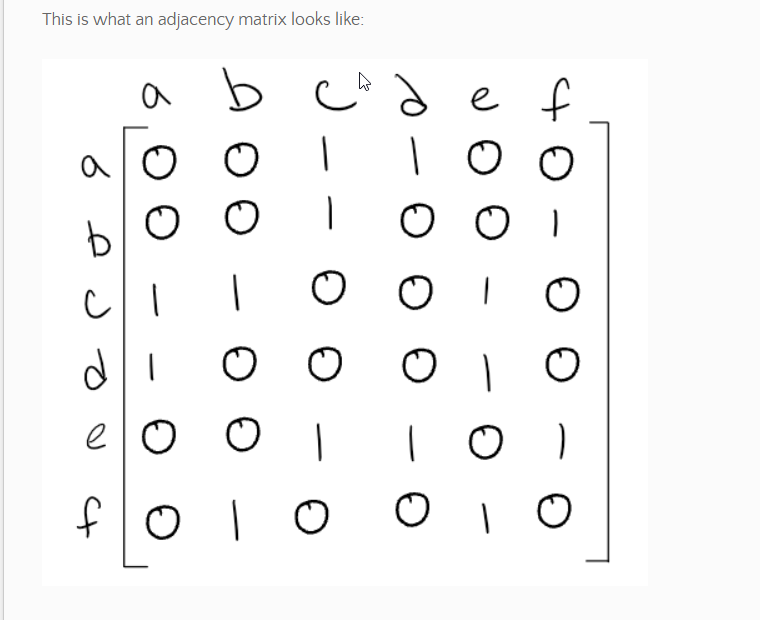 This is what an adjacency matrix looks like:
a b c d e f
a 0 0 1 1 0 0
b 0 0 1 0 0 1
c 1 1 0 0 1 0
d 1 0 0 0 1 0
e 0 0 1 1 0 1
f 0 1 0 0 1 0